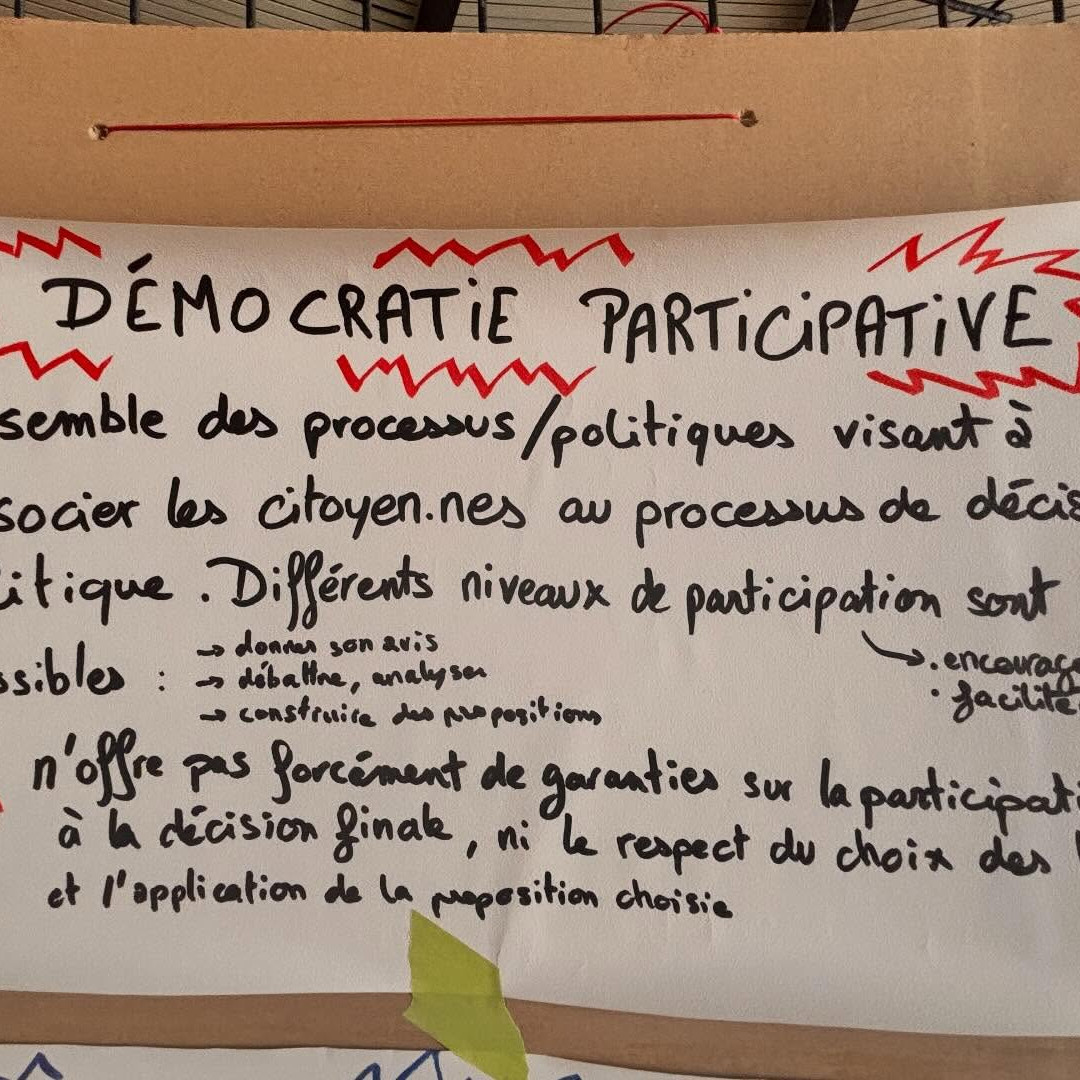 DÉMOCRATIE PARTICIPATIVE
semble des processus/politiques visant à
socier les citoyen.nes au processus de décis
itique. Différents niveaux de participation sont
ssibles :
→ donner son avis
→ débattre, analyser
→ construire des propositions
. encourage
• facilité
n'offre pas forcément de garanties sur la participati
à la décision finale, ni le respect du choix des
et l'application de la proposition choisie